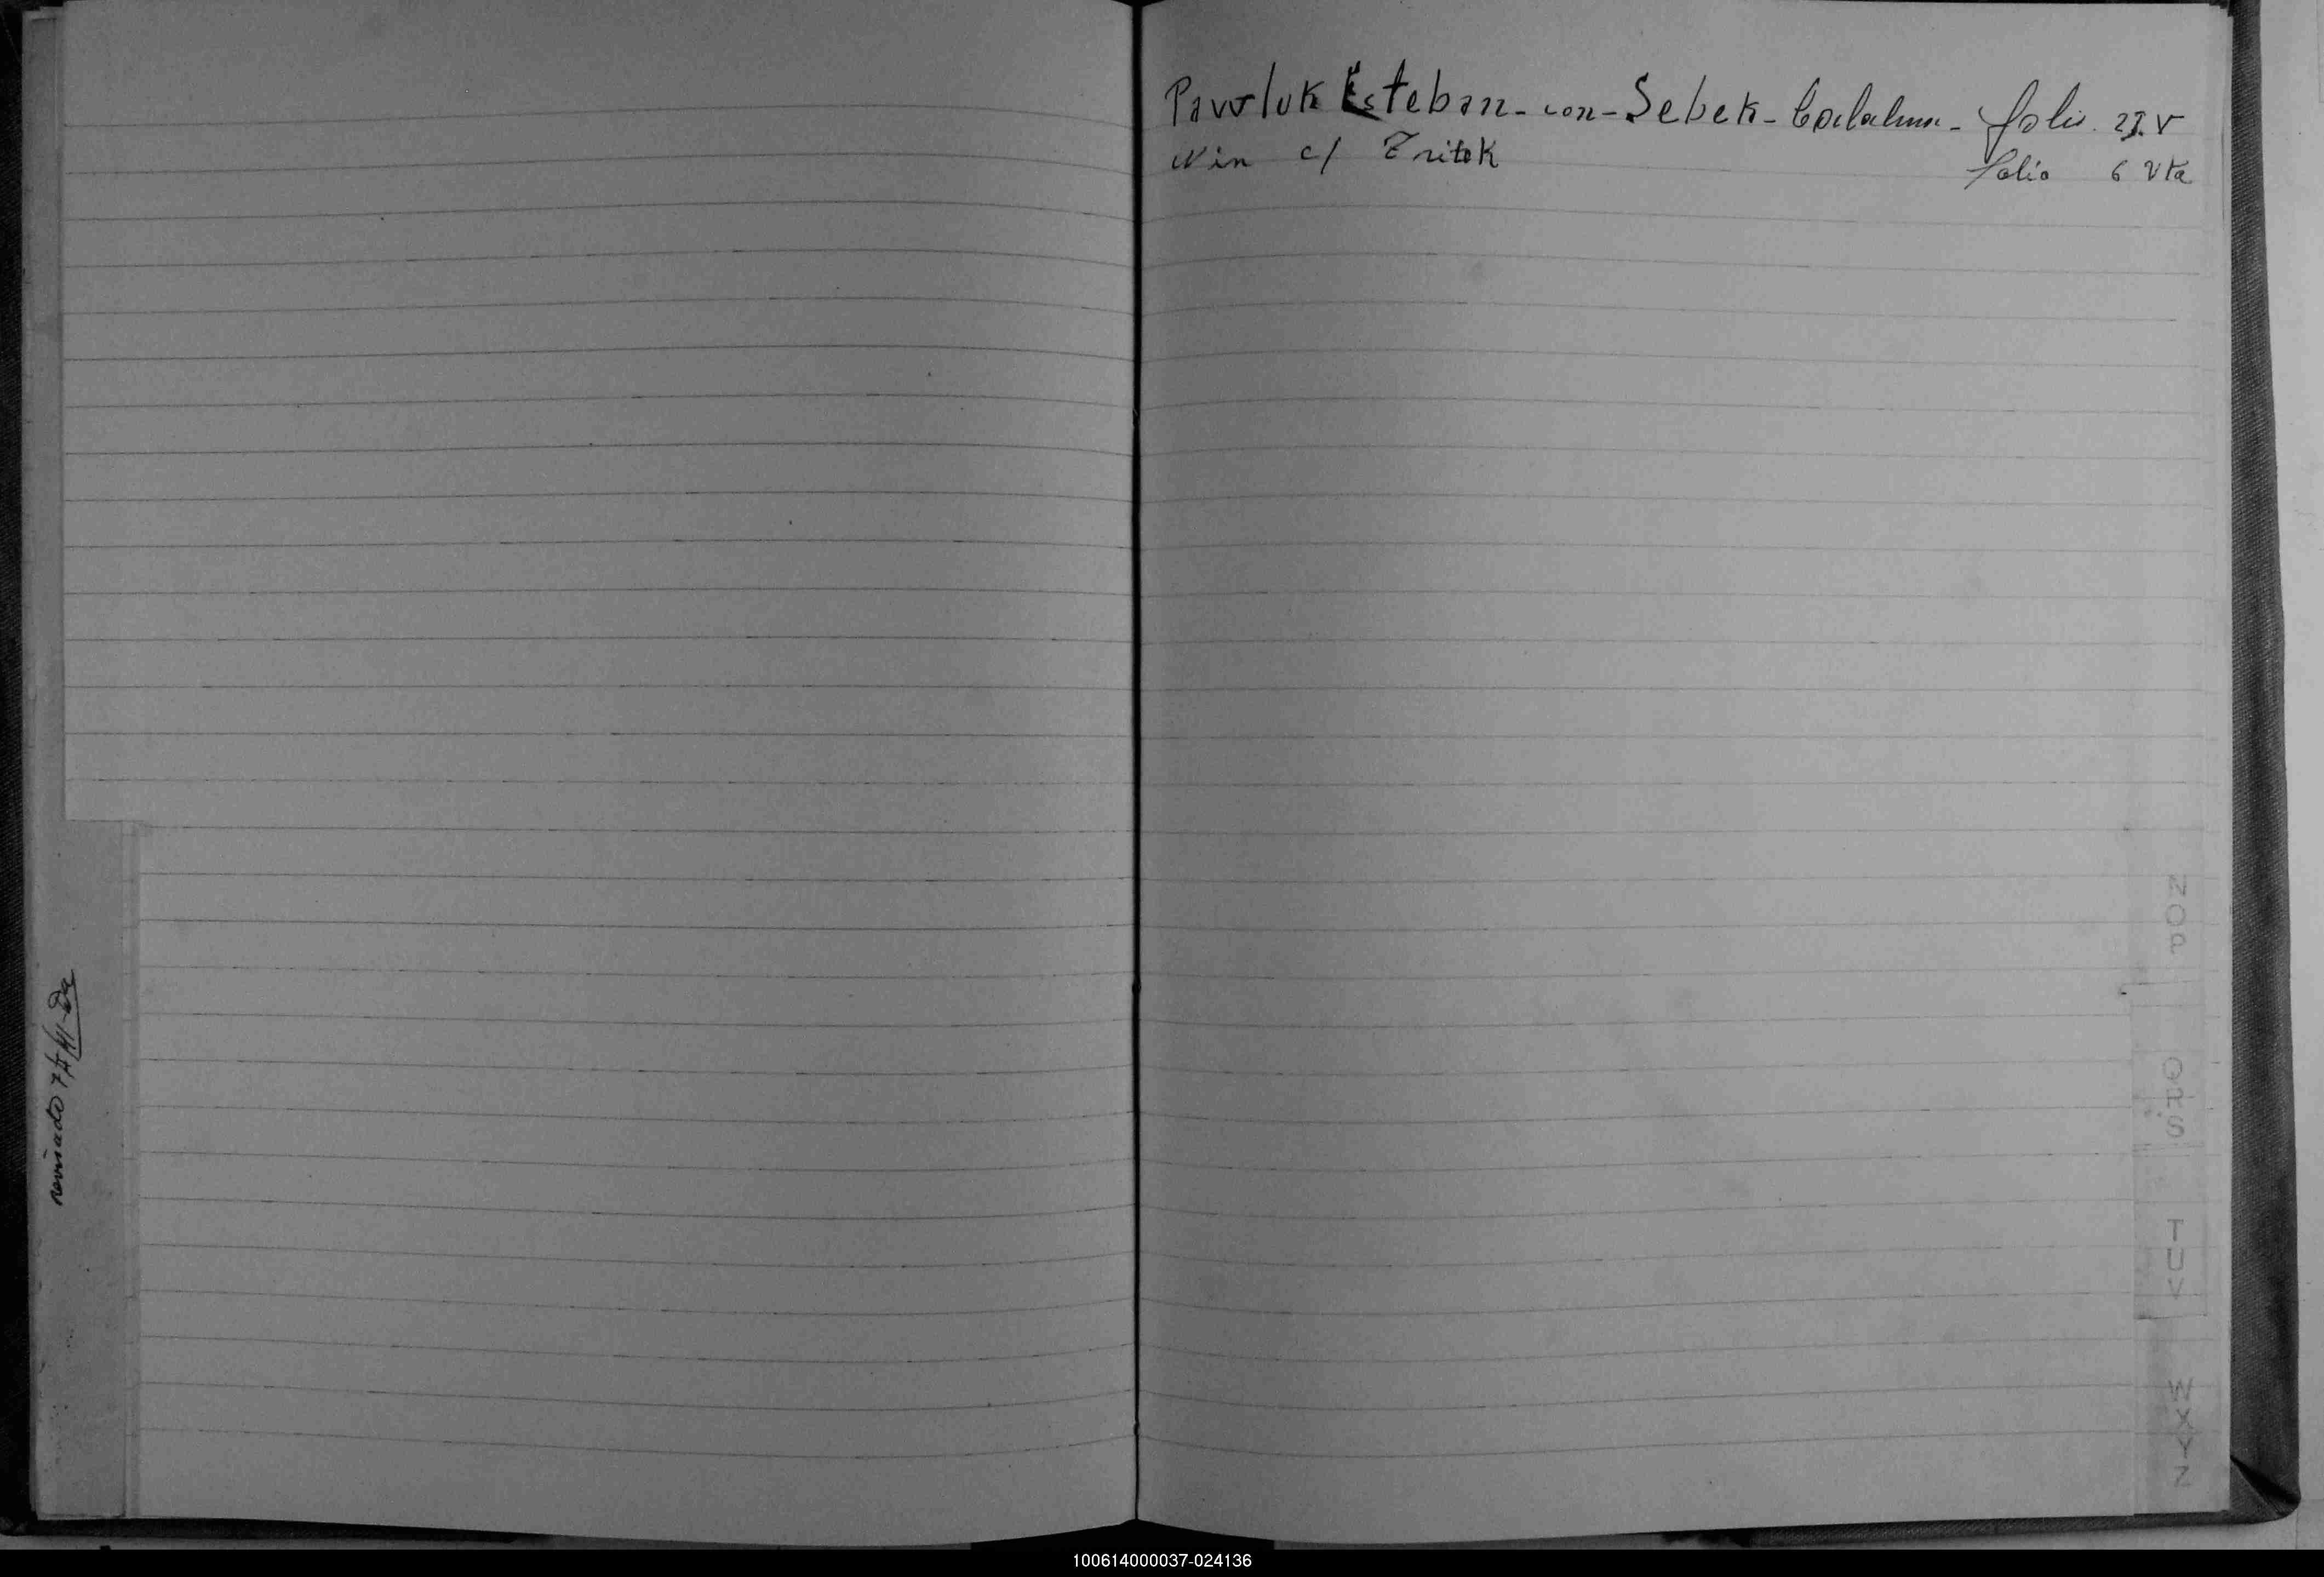 Pawluk Esteban - con - Sebek - Catalina - folio. 23. V
Win c/ Tritek
folio 6 Vta
revisado
N
O
P
Q
R
S
T
U
V
W
X
Y
Z
100614000037-024136